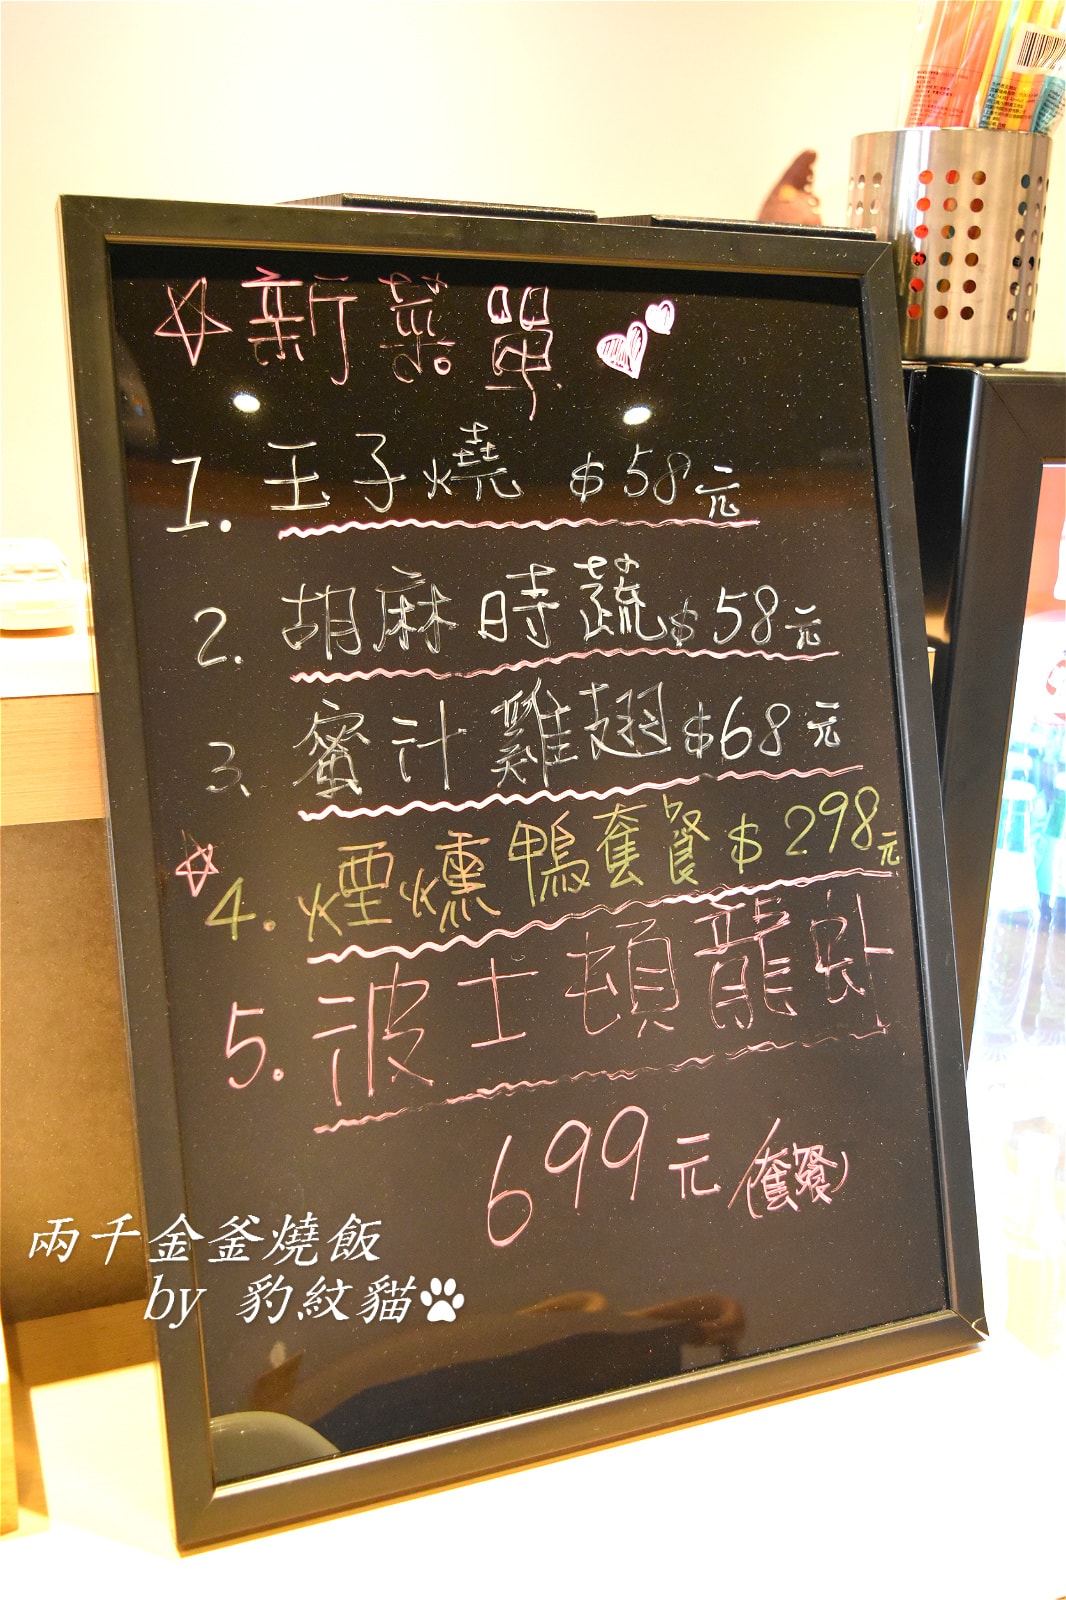 ☆新菜單
1. 玉子燒 $58元
2. 胡麻時蔬$58元
3、蜜汁雞翅$68元
☆4. 煙燻鴨套餐$298元
5. 波士頓龍虾
699元(套餐)
兩千金釜燒飯
by 豹紋貓